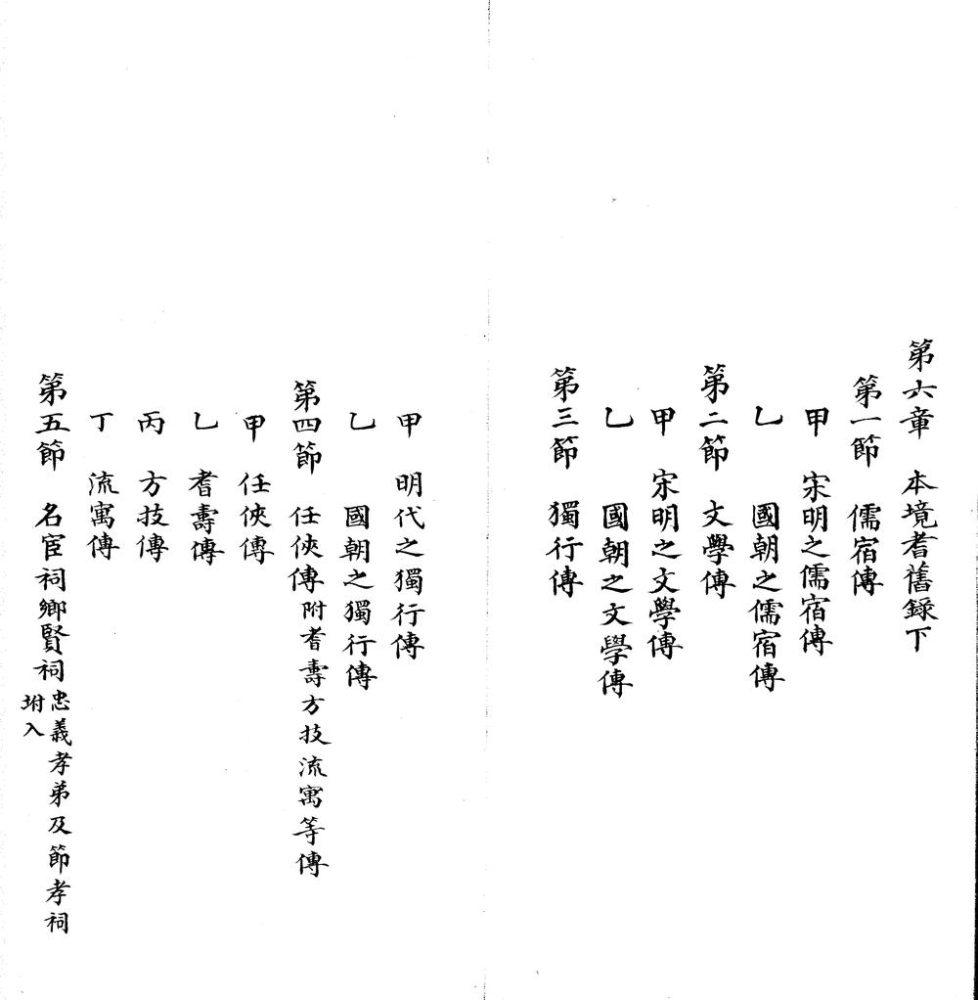 第六章　本境耆舊錄下
第一節　儒宿傳
甲　宋明之儒宿傳
乙　國朝之儒宿傳
第二節　文學傳
甲　宋明之文學傳
乙　國朝之文學傳
第三節　獨行傳
甲　明代之獨行傳
乙　國朝之獨行傳
第四節　任俠傳附耆壽方技流寓等傳
甲　任俠傳
乙　耆壽傳
丙　方技傳
丁　流寓傳
第五節　名宦祠鄉賢祠忠義孝弟及節孝祠
坿入